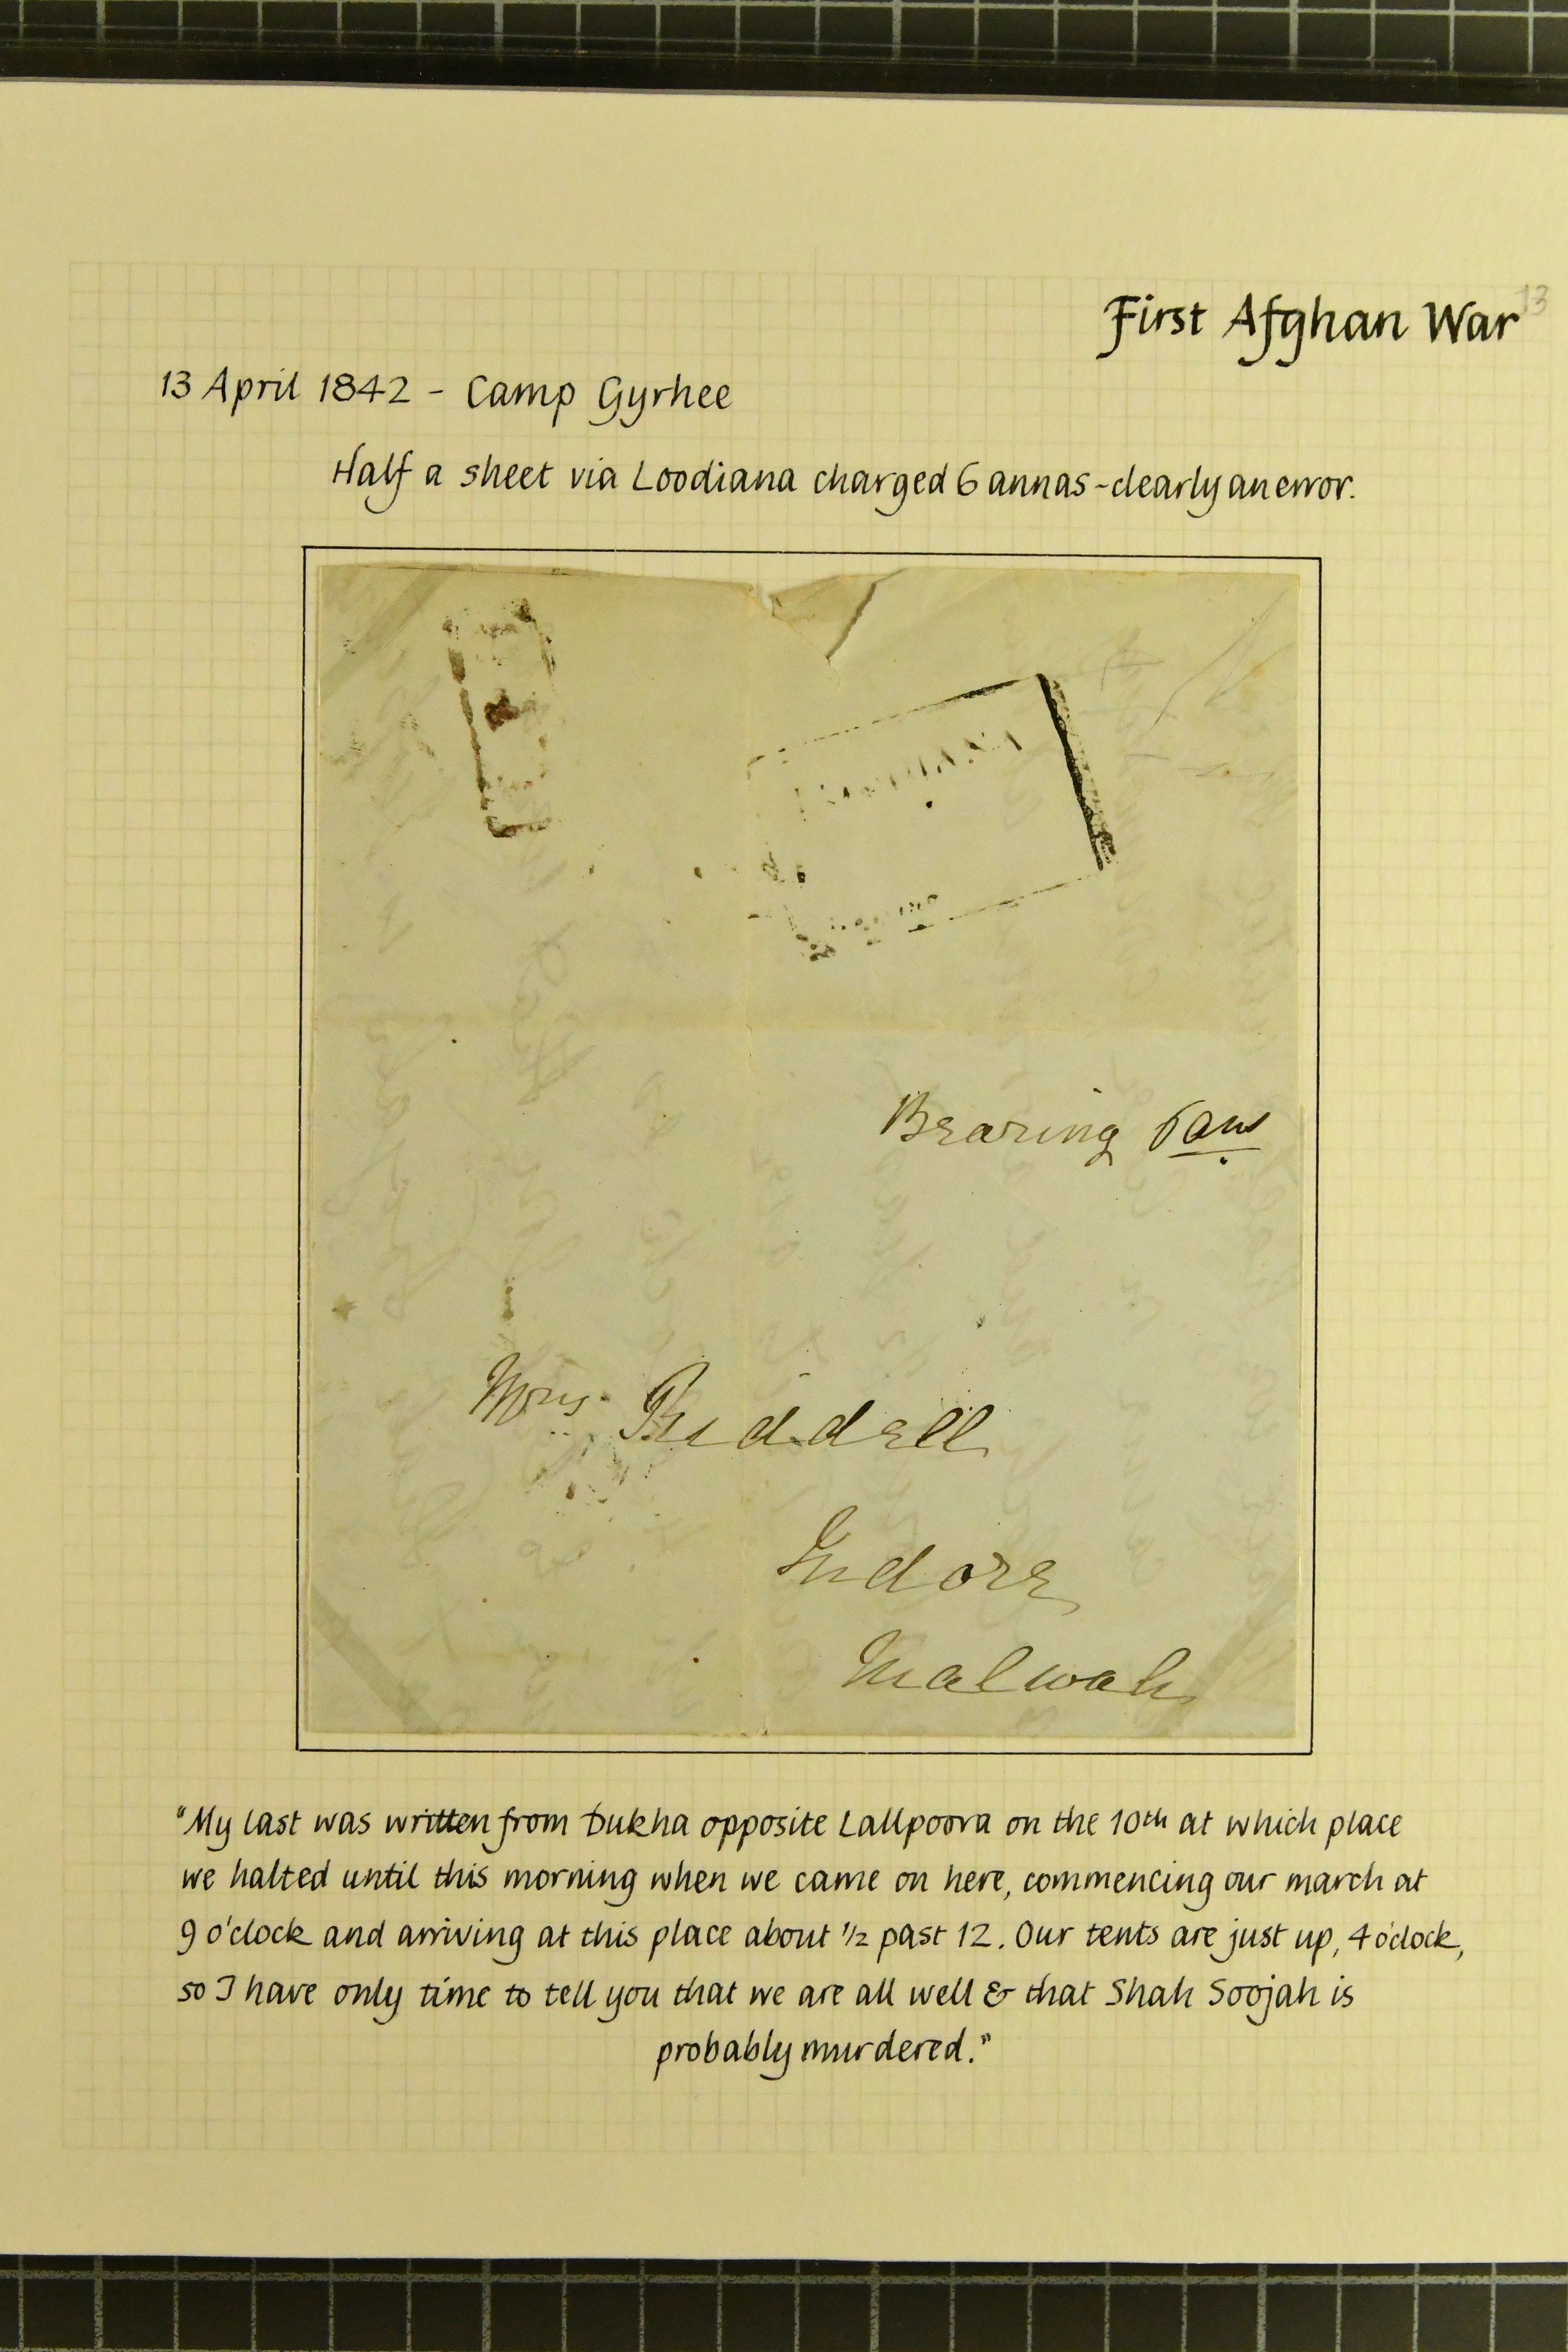 13
First Afghan War
13 April 1842 - Camp Gyrhee
Half a sheet via Loodiana charged 6 annas - clearly an error.
Bearing 6 ans
Mrs. Riddell
Indore
Malwah
"My last was written from Dukha opposite Lallpoora on the 10th at which place
we halted until this morning when we came on here, commencing our march at
9 o'clock and arriving at this place about ½ past 12. Our tents are just up, 4 o'clock,
so I have only time to tell you that we are all well & that Shah Soojah is
probably murdered."